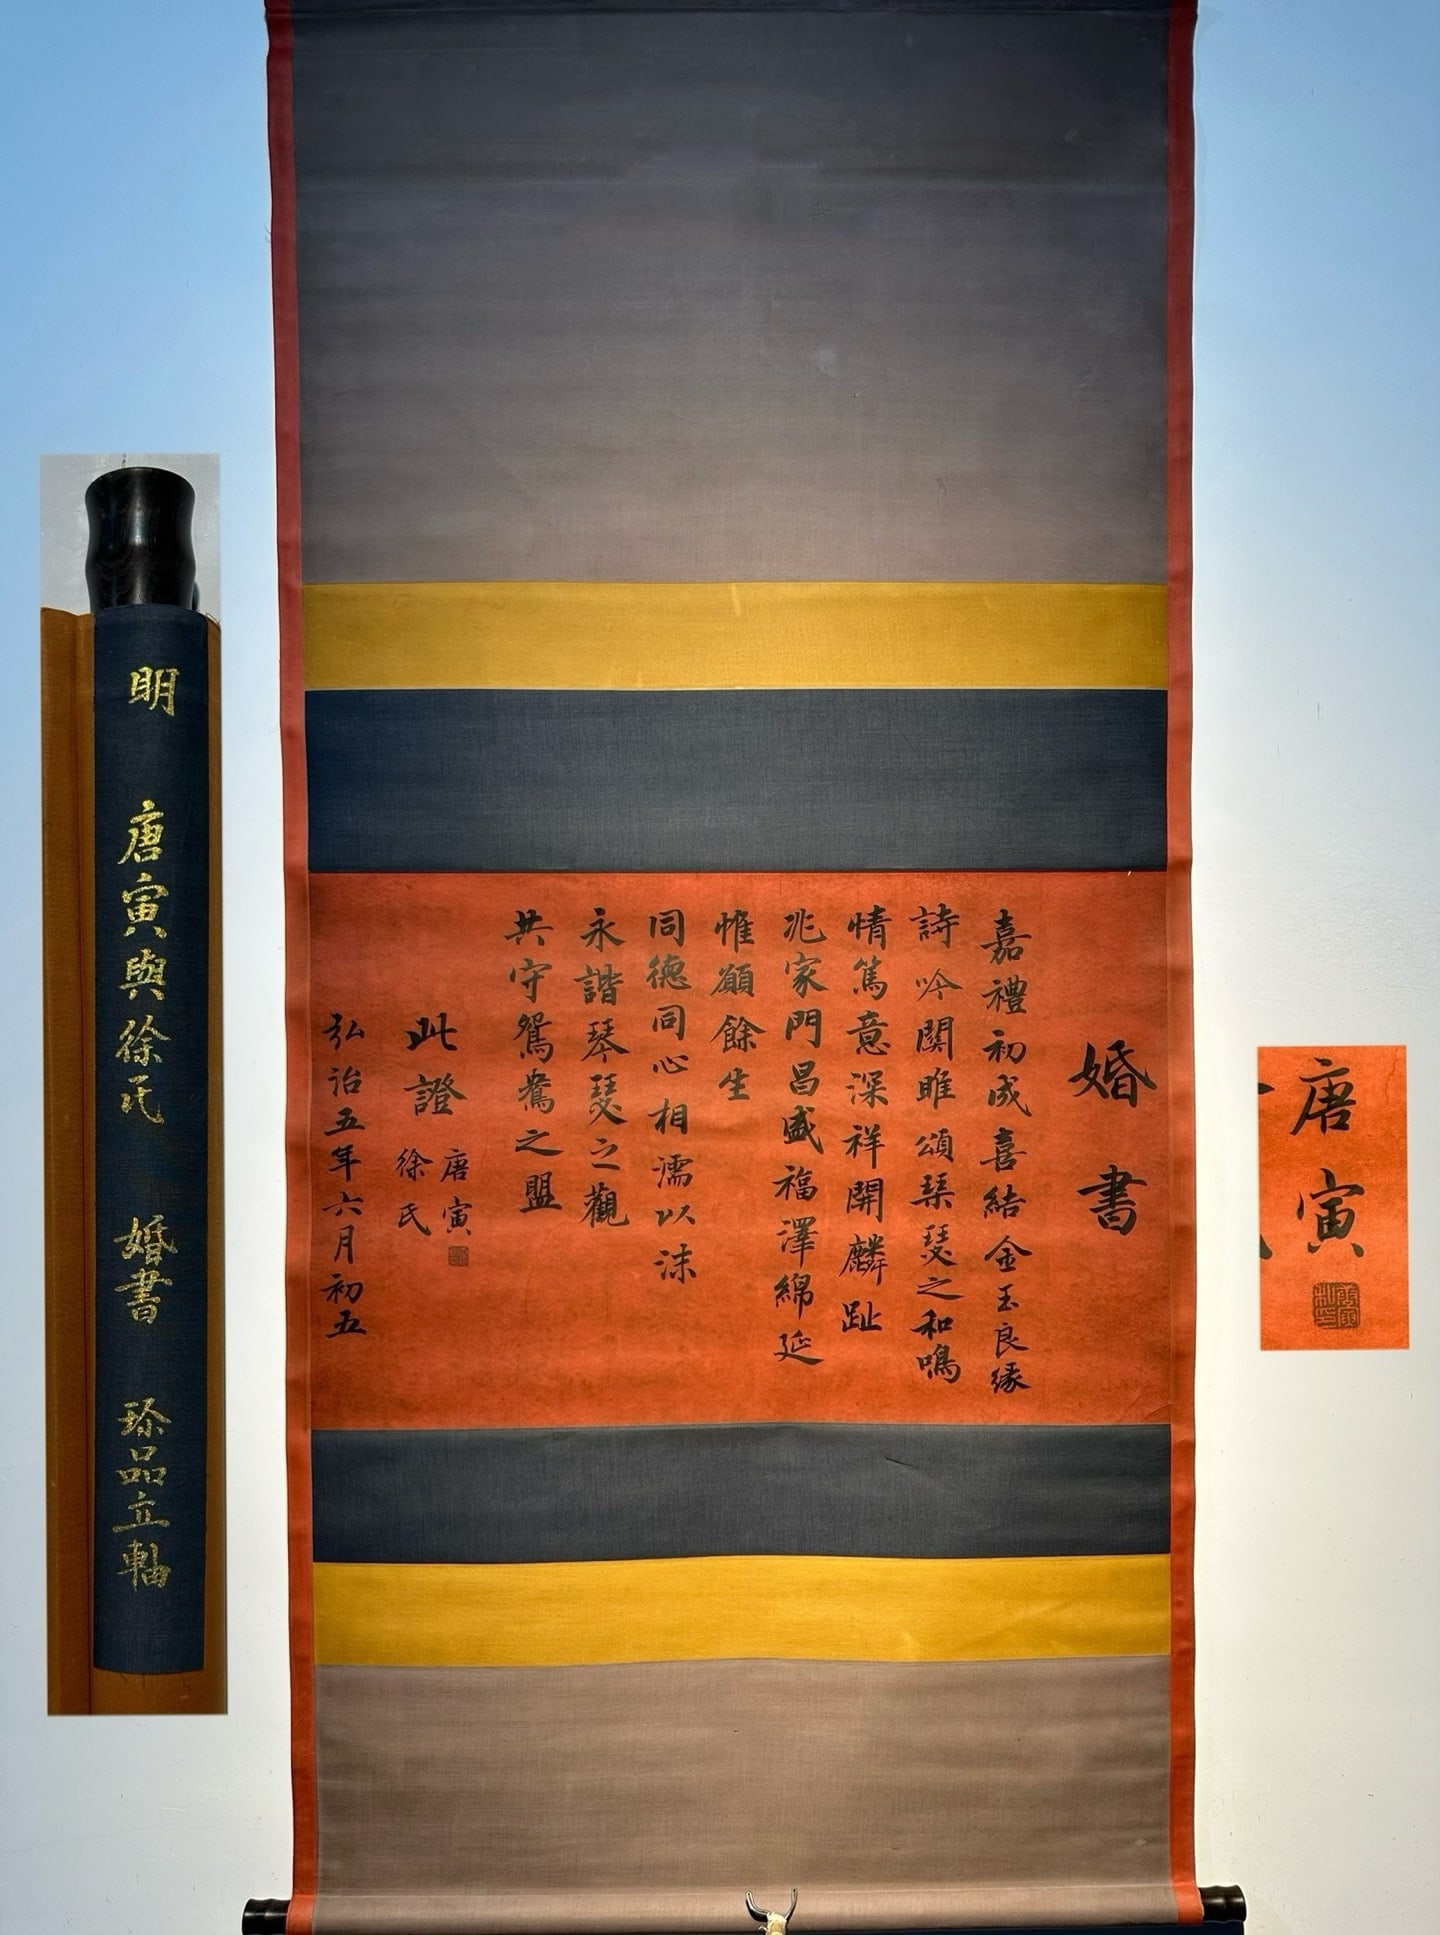 明 唐寅與徐氏 婚書 珍品立軸
婚書
嘉禮初成喜結金玉良緣
詩吟關雎頌琹瑟之和鳴
情篤意深祥開麟趾
兆家門昌盛福澤綿延
惟願餘生
同德同心相濡以沫
永諧琴瑟之觀
共守鴛鴦之盟
此證
唐寅
徐氏
弘治五年六月初五
唐寅